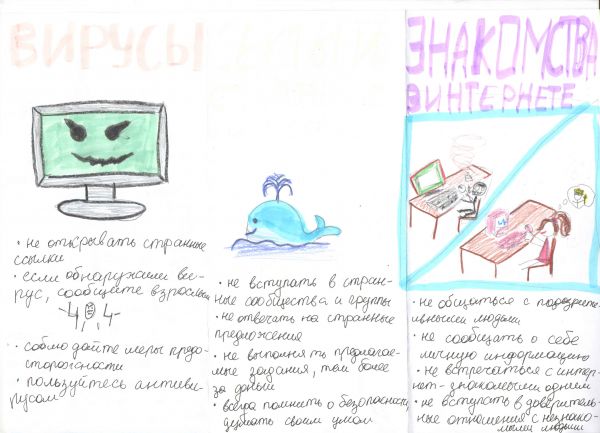 ВИРУСЫ
• не открывать странные
ссылки
• если обнаружили ви-
рус, сообщите взрослым
• соблюдайте меры предо-
сторожности
• пользуйтесь антиви-
русом
СЕКТЫ И
• не вступать в стран-
ные сообщества и группы
• не отвечать на странные
предложения
• не выполнять предлагае-
мые задания, тем более
за деньги
• всегда помнить о безопасности,
думать своим умом
ЗНАКОМСТВА
В ИНТЕРНЕТЕ
• не общаться с подозрите-
льными людьми
• не сообщать о себе
личную информацию
• не встречаться с интер-
нет-знакомыми одним
• не вступать в доверитель-
ные отношения с незнако-
мыми людьми